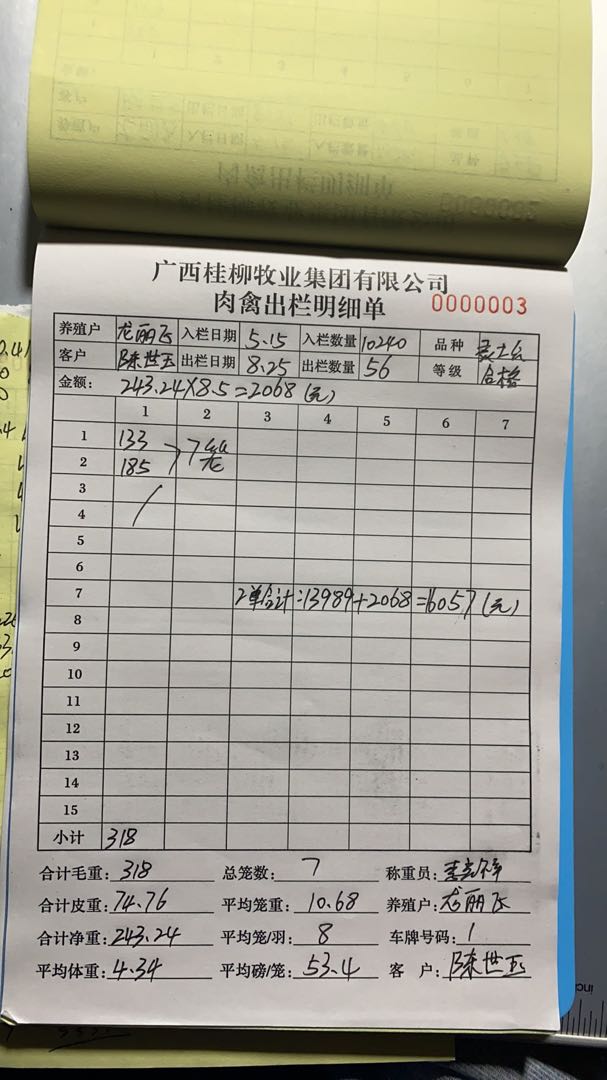 广西桂柳牧业集团有限公司
肉禽出栏明细单 0000003
养殖户 龙丽飞 入栏日期 5.15 入栏数量 10240 品种
客户 陈世玉 出栏日期 8.25 出栏数量 56 等级 合格
金额: 243.24×8.5=2068(元)
1 2 3 4 5 6 7
1 133
2 185 7笼
3
4
5
6
7 2单合计:13989+2068=16057(元)
8
9
10
11
12
13
14
15
小计 318
合计毛重: 318 总笼数: 7 称重员:
合计皮重: 74.76 平均笼重: 10.68 养殖户: 龙丽飞
合计净重: 243.24 平均笼/羽: 8 车牌号码: 1
平均体重: 4.34 平均磅/笼: 53.4 客户: 陈世玉